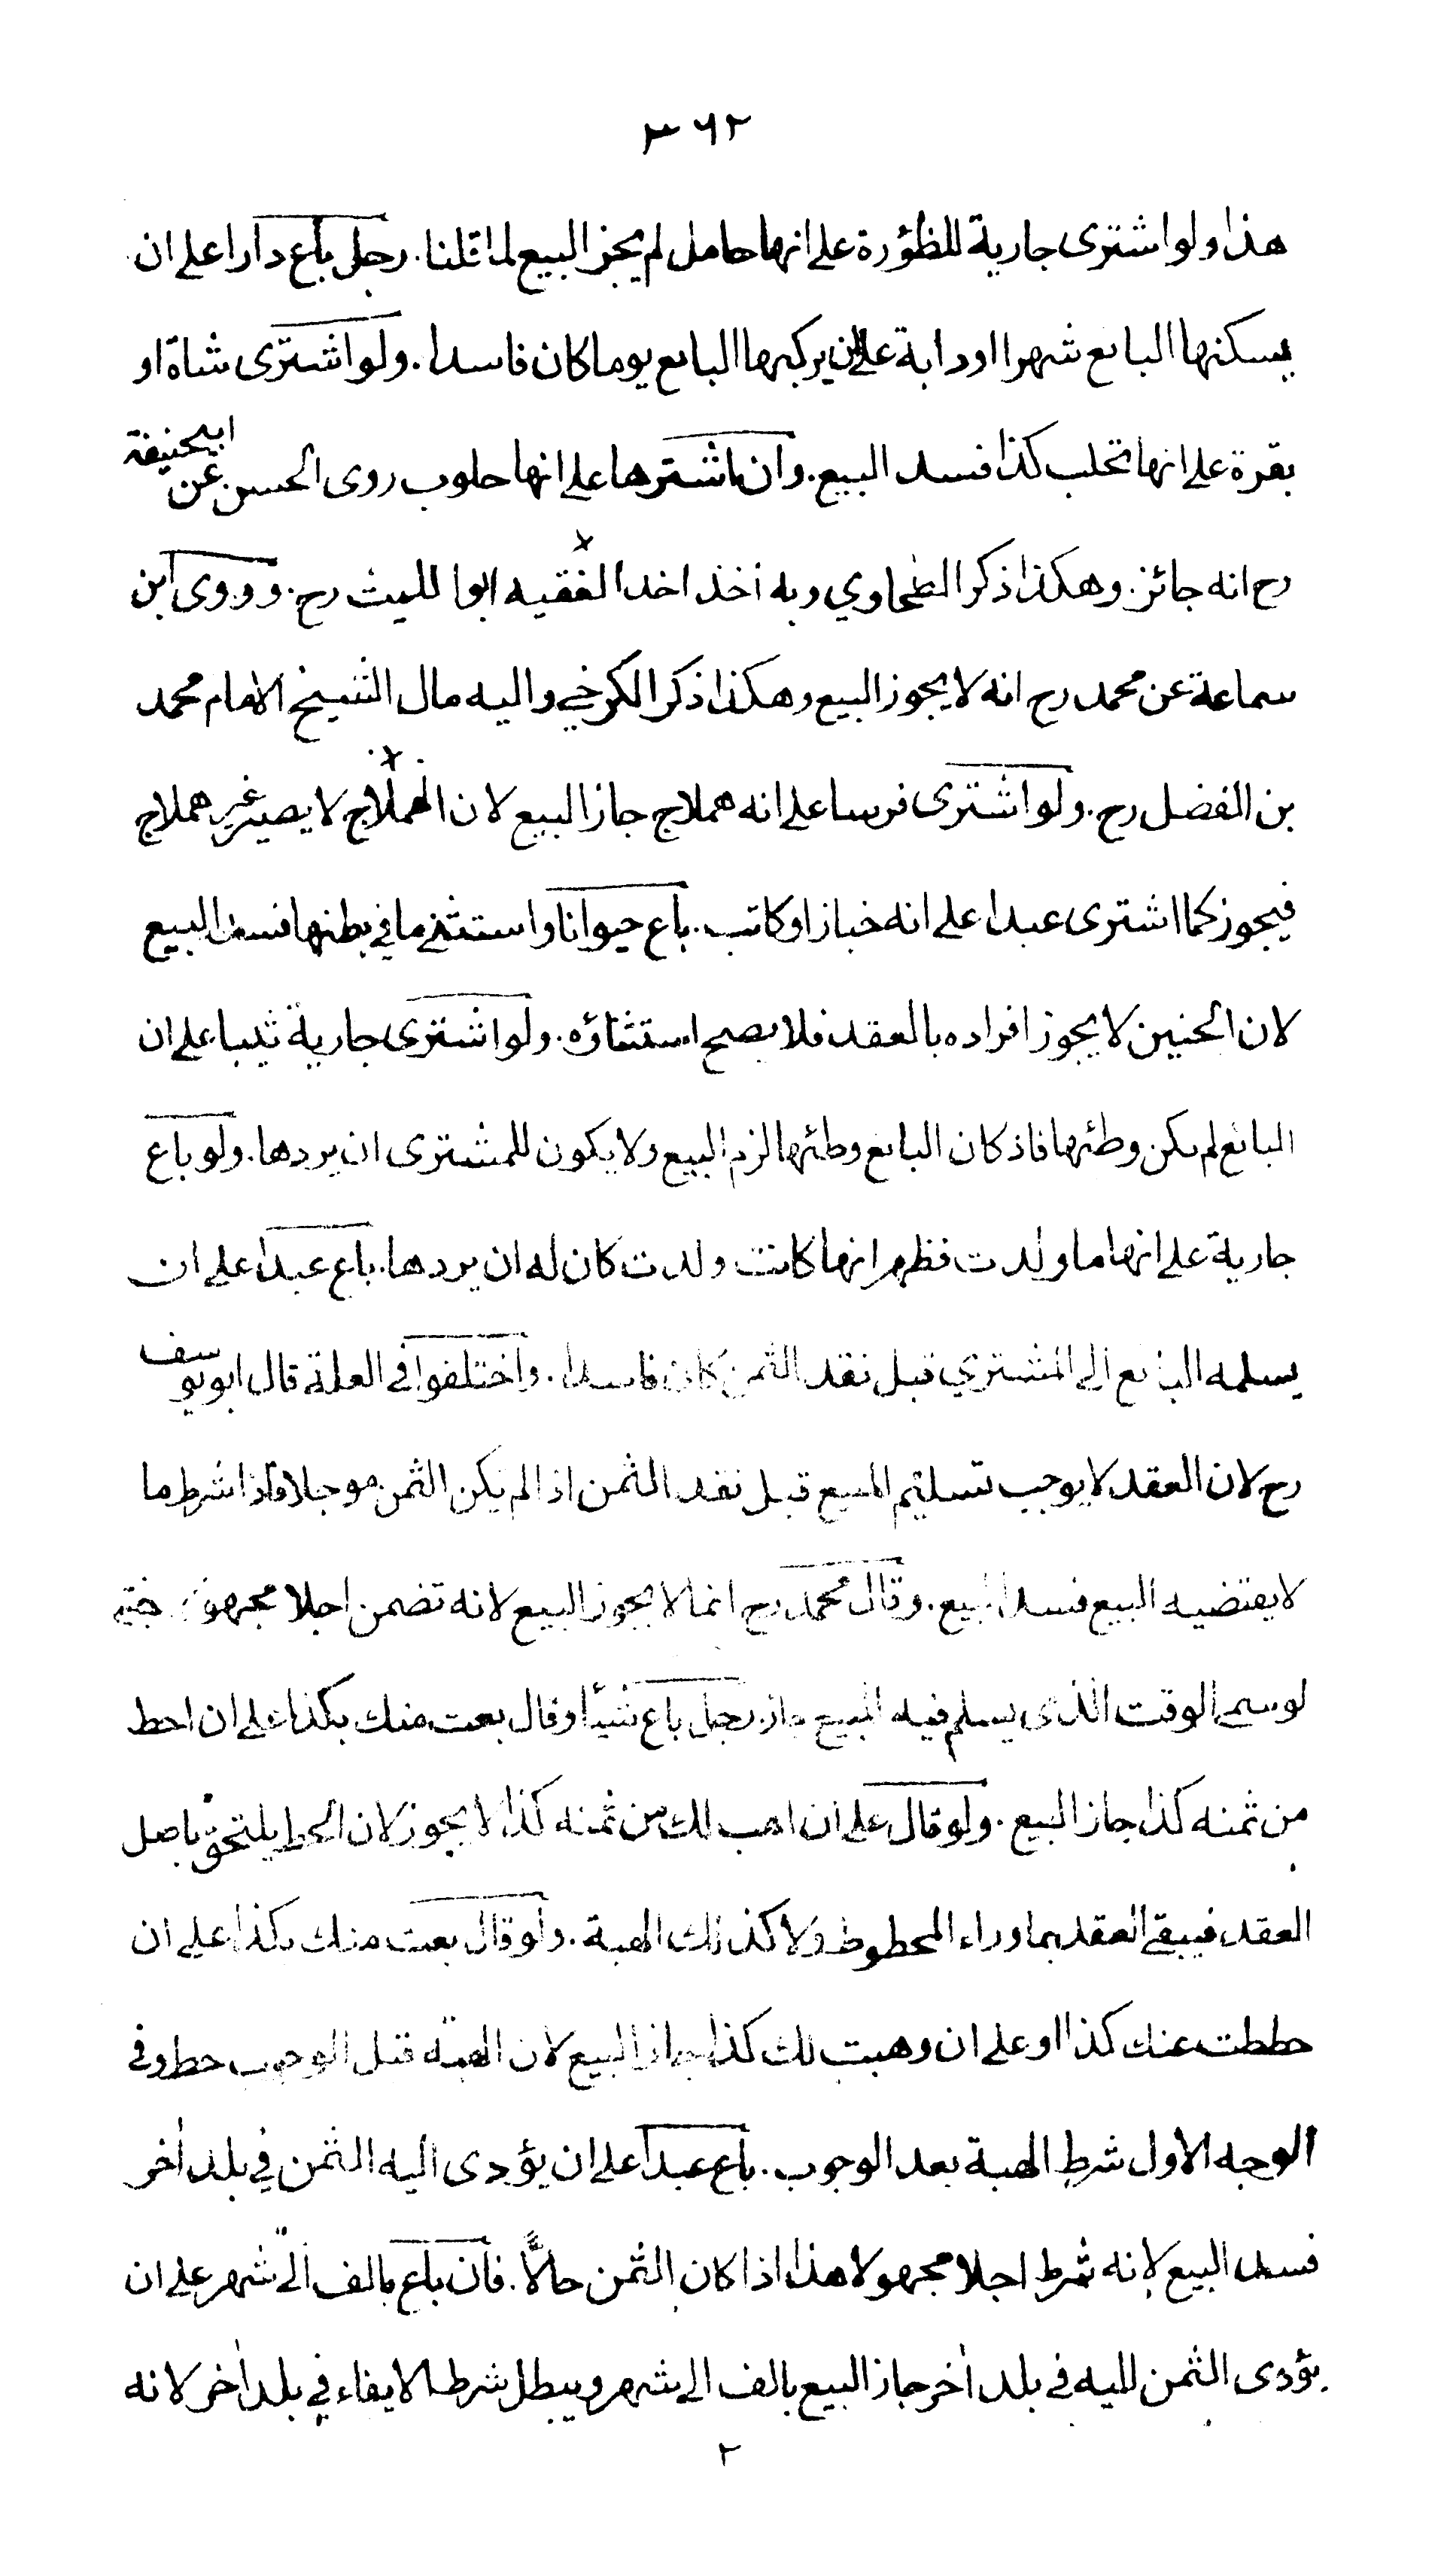 ٣٦٢
هذا ولو اشترى جارية للظؤرة على انها حامل لم يجز البيع لما قلنا. رجل باع دارا على ان
يسكنها البائع شهرا او دابة على ان يركبها البائع يوما كان فاسدا. ولو اشترى شاة او
بقرة على انها تحلب كذا فسد البيع. وان اشترها على انها حلوب روى الحسن عن ابيحنيفة
رح انه جائز. وهكذا ذكر الطحاوي وبه أخذ اخدا الفقيه ابوا الليث رح. وروى ابن
سماعة عن محمد رح انه لا يجوز البيع وهكذا ذكر الكرخي واليه مال الشيخ الامام محمد
بن الفضل رح. ولو اشترى فرسا على انه هملاج جاز البيع لان الهملاج لا يصير غير هملاج
فيجوز كما اشترى عبدا على انه خباز او كاتب. باع حيوانا واستثنى ما في بطنها فسد البيع
لان الجنين لا يجوز افراده بالعقد فلا يصح استثناؤه. ولو اشترى جارية ثيبا على ان
البائع لم يكن وطئها فاذ كان البائع وطئها لزم البيع ولا يكون للمشترى ان يردها. ولو باع
جارية على انها ما ولدت فظهر انها كانت ولدت كان له ان يردها. باع عبدا على ان
يسلمه البائع الى المشتري قبل نقد الثمن كان فاسدا. واختلفوا في العلة قال ابو يوسف
رح لان العقد لا يوجب تسليم المبيع قبل نقد الثمن اذا لم يكن الثمن موجلا فاذا شرط ما
لا يقتضيه البيع فسد البيع. وقال محمد رح انما لا يجوز البيع لانه تضمن اجلا مجهولا حتى
لو سمى الوقت الذى يسلم فيه المبيع جاز. رجل باع شيئا وقال بعت منك بكذا على ان احط
من ثمنه كذا جاز البيع. ولو قال على ان اهب لك من ثمنه كذا لا يجوز لان الحط يلتحق باصل
العقد فيبقى العقد بما وراء المحطوط ولا كذلك الهبة. ولو قال بعت منك بكذا على ان
حططت عنك كذا او على ان وهبت لك كذا جاز البيع لان الهبة قبل الوجوب حط وفي
الوجه الاول شرط الهبة بعد الوجوب. باع عبدا على ان يؤدى اليه الثمن في بلد أخر
فسد البيع لانه شرط اجلا مجهولا هذا اذا كان الثمن حالًا. فان باع بالف الى شهر على ان
يؤدى الثمن لليه في بلد أخر جاز البيع بالف الى شهر ويبطل شرط الايفاء في بلد أخر لانه
٢